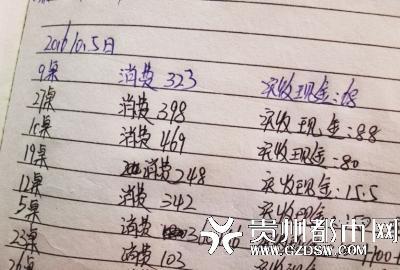 2016.10.5日
9桌 消费 323 实收现金:68
27桌 消费 398 实收现金:88
1桌 消费 469 实收现金:80
19桌 消费 248 实收现金:15.5
12桌 消费 342 实收现金
5桌 消费
23桌 消费 103
贵州都市网
GZDSW.COM